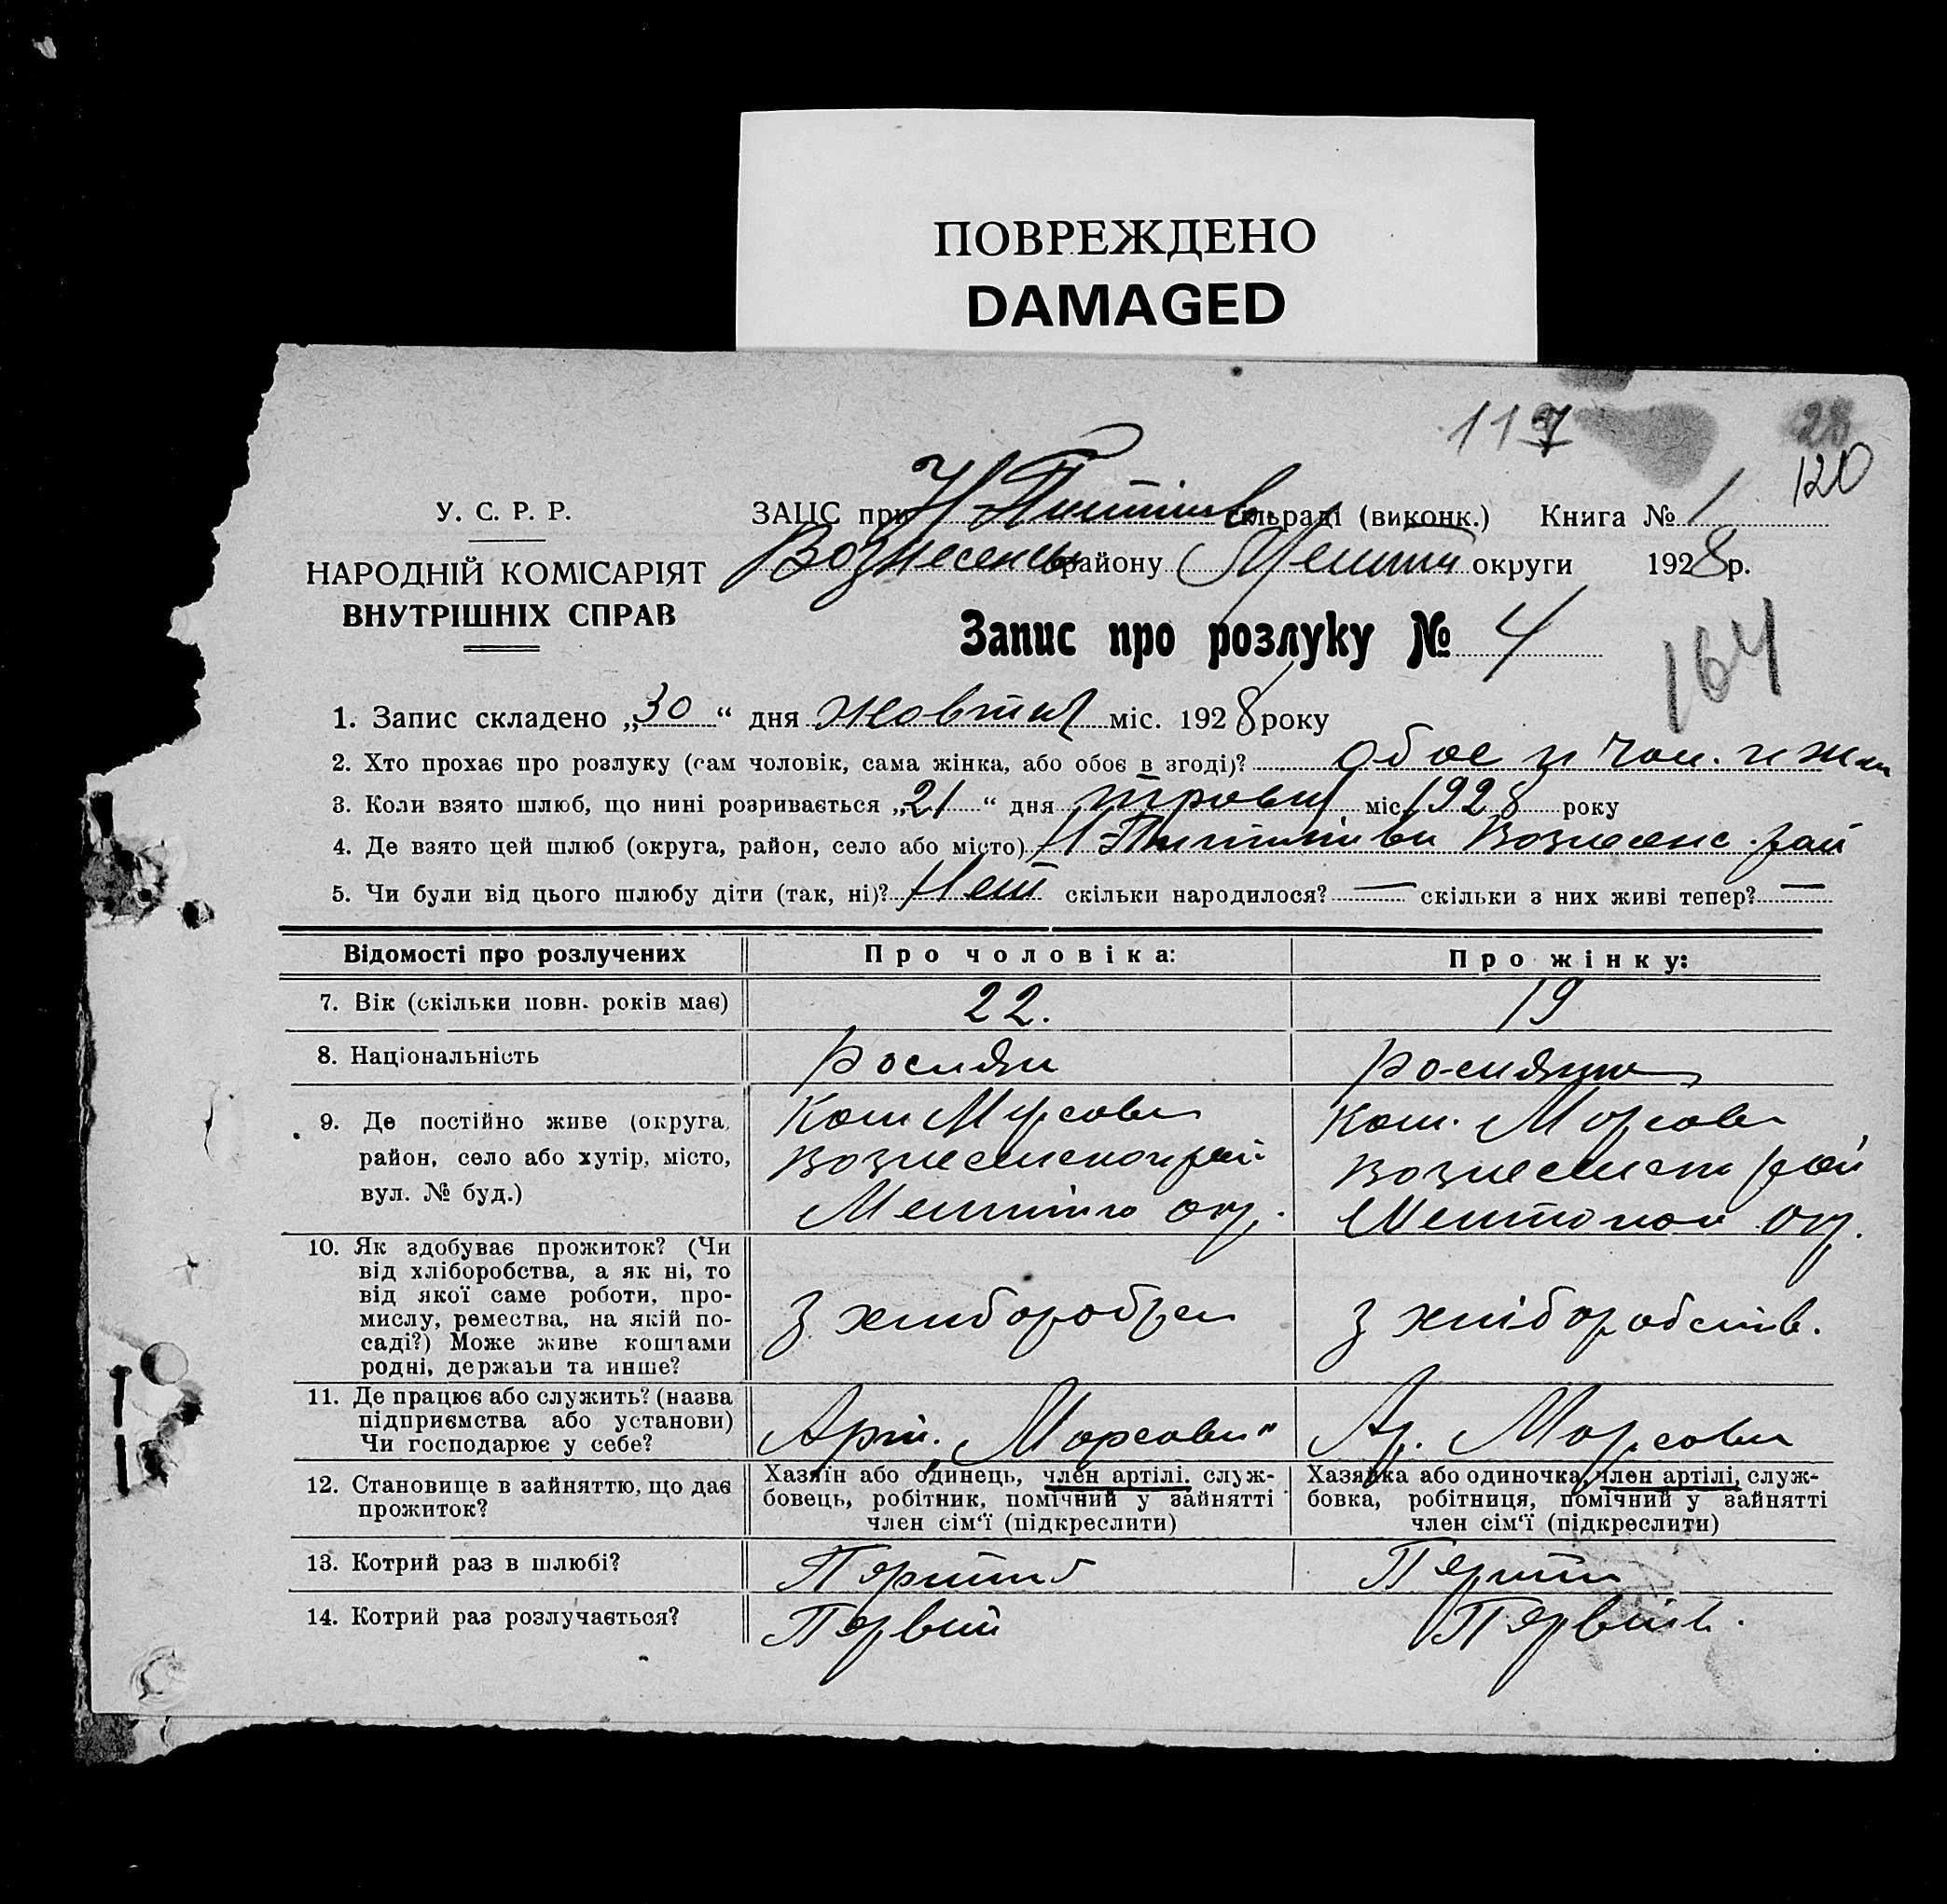 ПОВРЕЖДЕНО
DAMAGED
117
28
120
У. С. Р. Р.
НАРОДНІЙ КОМІСАРІЯТ
ВНУТРІШНІХ СПРАВ
ЗАЦС при сільраді (виконк.) Книга № 1
Вознесенськ району округи 1928 р.
Запис про розлуку № 4
164
1. Запис складено „30“ дня жовтня міс. 1928 року
2. Хто прохає про розлуку (сам чоловік, сама жінка, або обоє в згоді)? обоє и чол. и жин
3. Коли взято шлюб, що нині розривається „21“ дня травня міс 1928 року
4. Де взято цей шлюб (округа, район, село або місто) Вознесенс. рай
5. Чи були від цього шлюбу діти (так, ні)? Нет скільки народилося? — скільки з них живі тепер? —
Відомості про розлучених
Про чоловіка:
Про жінку:
7. Вік (скільки повн. років має)
22.
19
8. Національність
росиян
росиянка
9. Де постійно живе (округа, район, село або хутір, місто, вул. № буд.)
Ком Морсови
Вознесенской рай
Мелитіно окр.
Ком. Морсови
Вознесенско рай
Мелитопол окр.
10. Як здобуває прожиток? (Чи
від хліборобства, а як ні, то
від якої саме роботи, про-
мислу, ремества, на якій по-
саді?) Може живе коштами
родні, держави та инше?
З хлиборобства
З хліборобств.
11. Де працює або служить? (назва
підприємства або установи)
Чи господарює у себе?
Арт. „Морсови“
Ар. Морсови
12. Становище в зайняттю, що дає
прожиток?
Хазяїн або одинець, член артілі, служ-
бовець, робітник, помічний у зайнятті
член сім‘ї (підкреслити)
Хазяйка або одиночка, член артілі, служ-
бовка, робітниця, помічний у зайнятті
член сім‘ї (підкреслити)
13. Котрий раз в шлюбі?
14. Котрий раз розлучається?
Первий